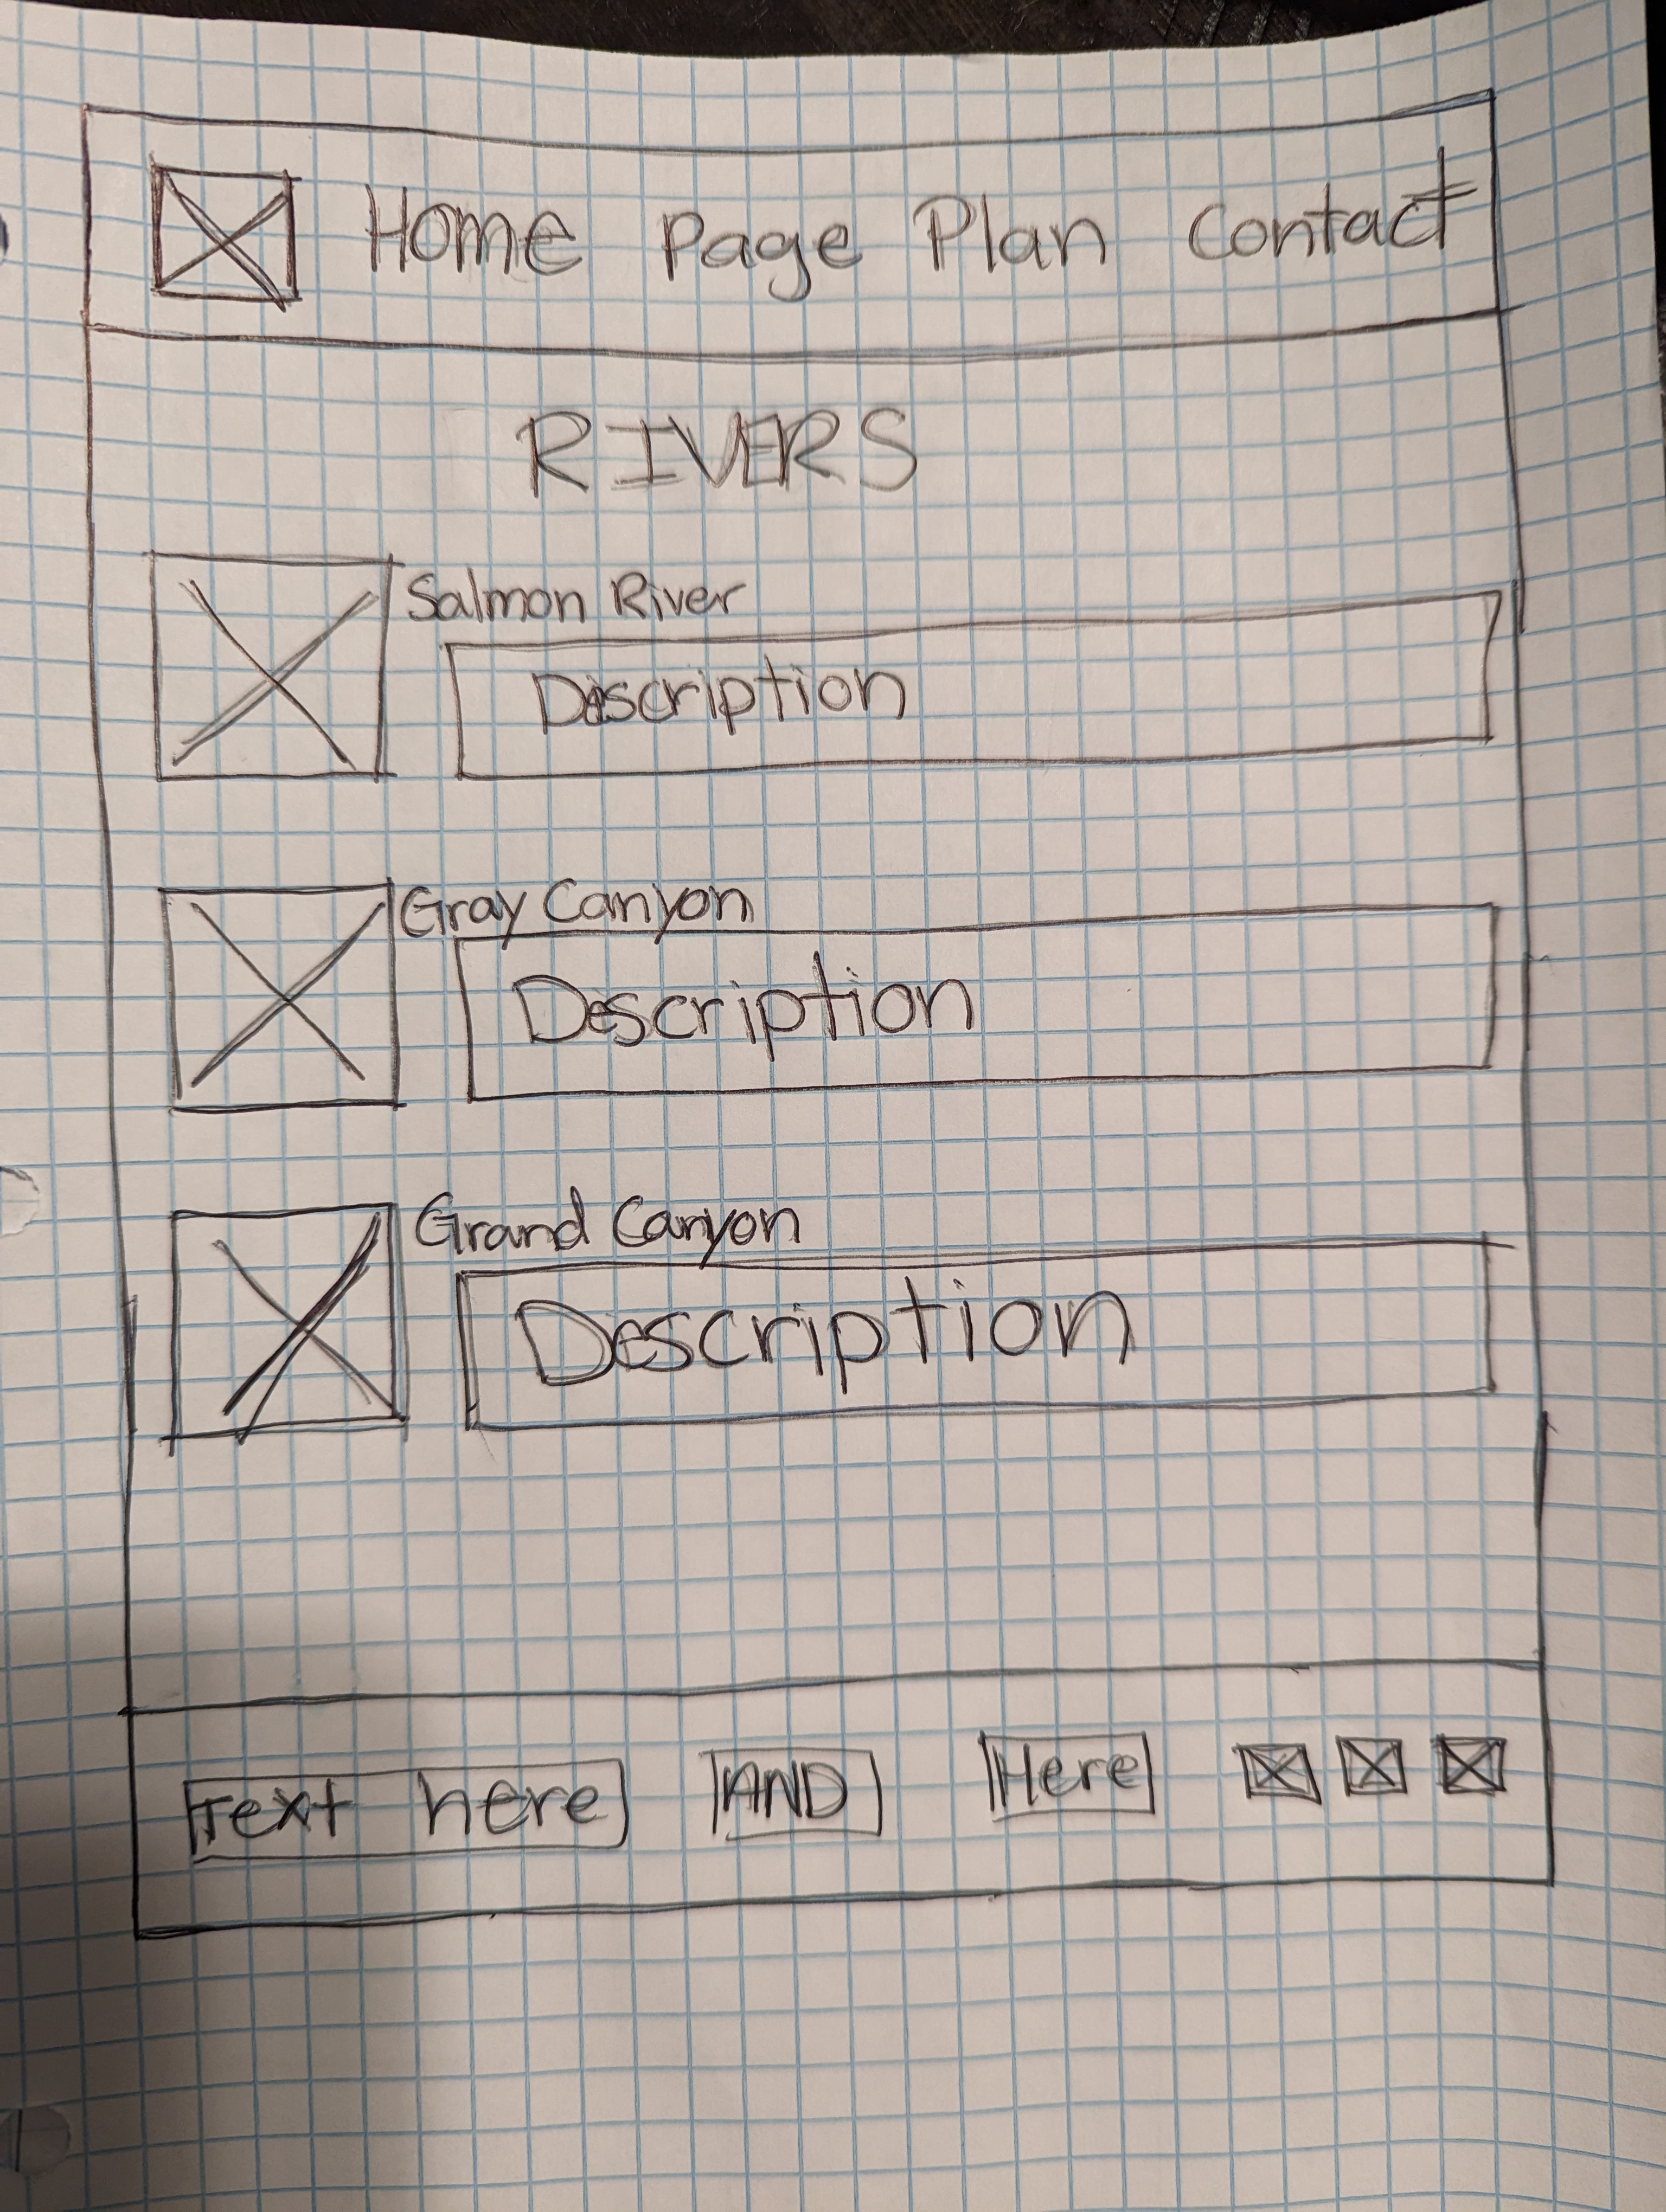 Home Page Plan Contact
RIVERS
Salmon River
Description
Gray Canyon
Description
Grand Canyon
Description
Text here AND Here